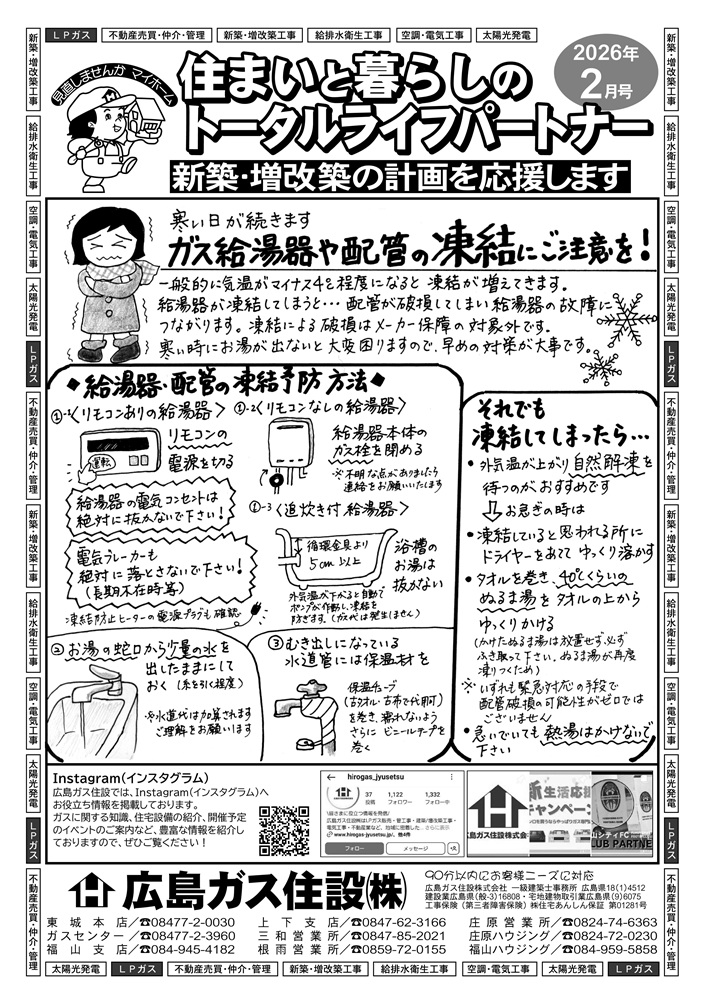 LPガス 不動産売買・仲介・管理 新築・増改築工事 給排水衛生工事 空調・電気工事 太陽光発電
見直しませんか マイホーム
住まいと暮らしの
トータルライフパートナー
2026年
2月号
新築・増改築の計画を応援します
寒い日が続きます
ガス給湯器や配管の凍結にご注意を!
一般的に気温がマイナス4℃程度になると 凍結が増えてきます。
給湯器が凍結してしまうと… 配管が破損してしまい給湯器の故障に
つながります。凍結による破損はメーカー保障の対象外です。
寒い時にお湯が出ないと大変困りますので、早めの対策が大事です。
◆給湯器・配管の凍結予防方法◆
①-1〈リモコンありの給湯器〉
リモコンの
電源を切る
運転
給湯器の電気コンセントは
絶対に抜かないで下さい!
電気ブレーカーも
絶対に落とさないで下さい!
(長期不在時等)
凍結防止ヒーターの電源プラグも確認
①-2〈リモコンなしの給湯器〉
給湯器本体の
ガス栓を閉める
※不明な点がありましたら
連絡をお願いいたします
①-3〈追炊き付給湯器〉
循環金具より
5cm以上
浴槽の
お湯は
抜かない
外気温が下がると自動で
ポンプが作動し、凍結を
防ぎます。(ガス代は発生しません)
②お湯の蛇口から少量の水を
出したままにして
おく (糸を引く程度)
※水道代は加算されます
ご理解をお願います
③むき出しになっている
水道管には保温材を
保温チューブ
(古タオル・古布で代用可)
を巻き、濡れないよう
さらに ビニールテープを
巻く
それでも
凍結してしまったら…
・外気温が上がり自然解凍を
待つのがおすすめです
⇩お急ぎの時は
・凍結していると思われる所に
ドライヤーをあてて ゆっくり溶かす
・タオルを巻き、40℃くらいの
ぬるま湯をタオルの上から
ゆっくりかける
(かけたぬるま湯は放置せず、必ず
ふき取って下さい。ぬるま湯が再度
凍りつくため)
※いずれも緊急対応の手段で
配管破損の可能性がゼロでは
ございません
・急いでいても熱湯はかけないで
下さい
Instagram(インスタグラム)
広島ガス住設では、Instagram(インスタグラム)へ
お役立ち情報を掲載しております。
ガスに関する知識、住宅設備の紹介、開催予定
のイベントのご案内など、豊富な情報を紹介し
ておりますので、ぜひご覧ください!
hirogas_jyusetsu
37 1,122 1,332
投稿 フォロワー フォロー中
フォロー メッセージ
広島ガス住設(株)
90分以内にお客様ニーズに対応
広島ガス住設株式会社 一級建築士事務所 広島県18(1)4512
建設業広島県(般-3)16808・宅地建物取引業広島県(9)6075
工事保険(第三者障害保険)㈱住宅あんしん保証 第01281号
東城本店/☎08477-2-0030 上下支店/☎0847-62-3166 庄原営業所/☎0824-74-6363
ガスセンター/☎08477-2-3960 三和営業所/☎0847-85-2021 庄原ハウジング/☎0824-72-0230
福山支店/☎084-945-4182 根雨営業所/☎0859-72-0155 福山ハウジング/☎084-959-5858
太陽光発電 LPガス 不動産売買・仲介・管理 新築・増改築工事 給排水衛生工事 空調・電気工事 太陽光発電 LPガス